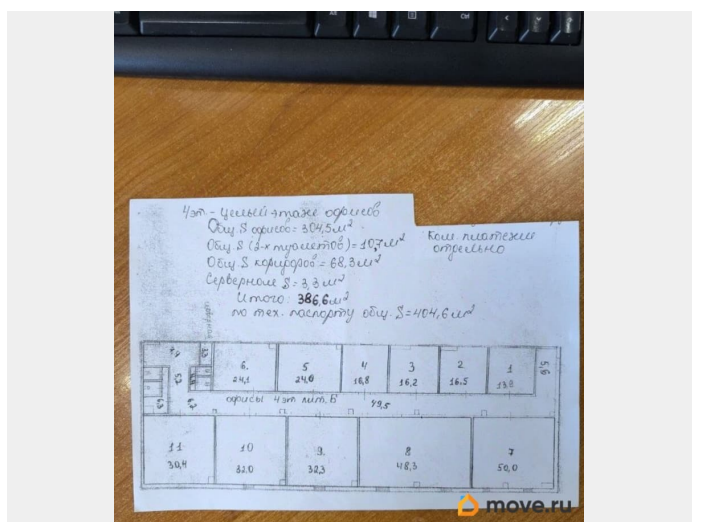 4 эт. - целый этаж офисов
Общ S офисов = 304,5 м²
Общ. S (2-х туалетов) = 10,7 м²
Общ. S коридоров = 68,3 м²
Серверное S = 3,3 м²
Итого 386,6 м²
по тех. паспорту общ. S = 404,6 м²
Ком. платежи
отдельно
6. 5 4 3 2 1
24,1 24,0 16,8 16,2 16,5 13,8
5,6
офисы 4 эт лит. Б'
49,5
11 10 9. 8 7
30,4 32.0 32,3 48,3 50,0
move.ru
Ctrl